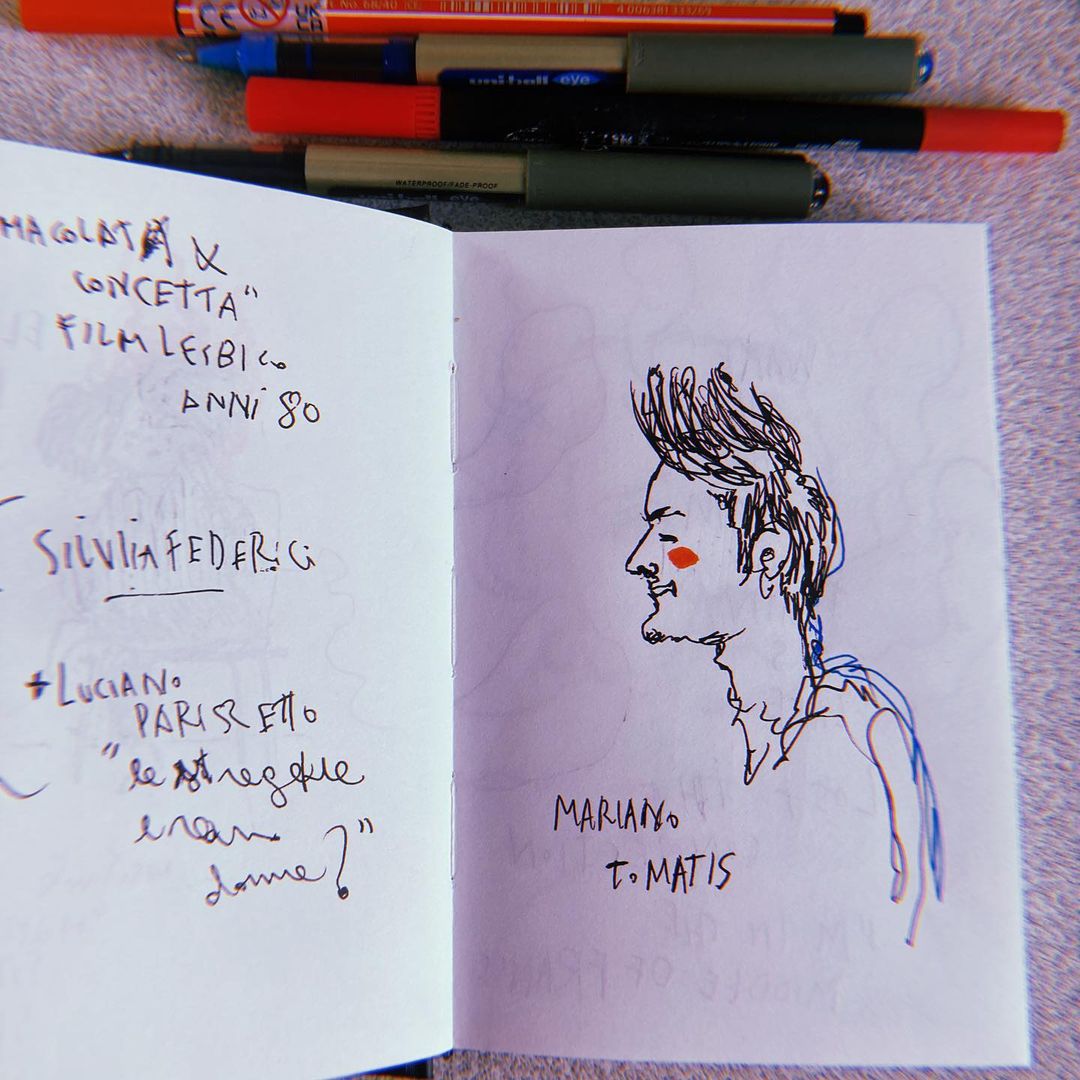 No. 68/40
4 006381 333269
uni-ball eye
WATERPROOF/FADE-PROOF
MACOLATA &
CONCETTA"
FILM LESBICO
ANNI 80
SILVIA FEDERICI
+ LUCIANO
PARISETTO
"le streghe
erano
donne?"
MARIANO
TOMATIS